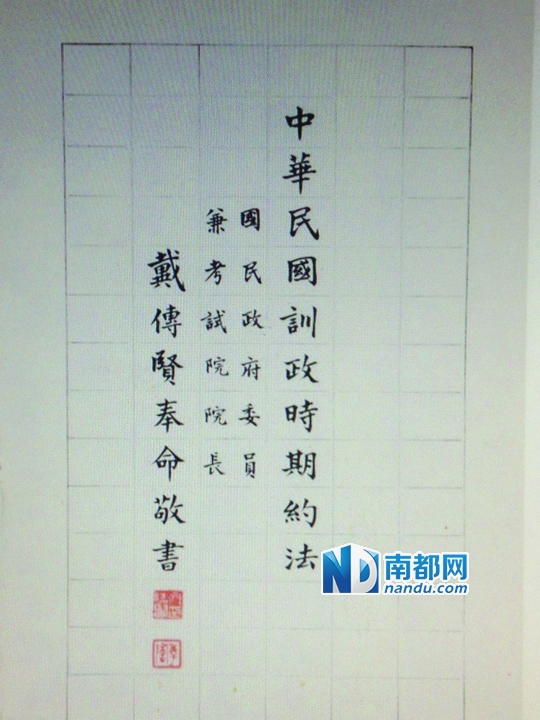 中華民國訓政時期約法
國民政府委員
兼考試院院長
戴傳賢奉命敬書
ND 南都网
nandu.com